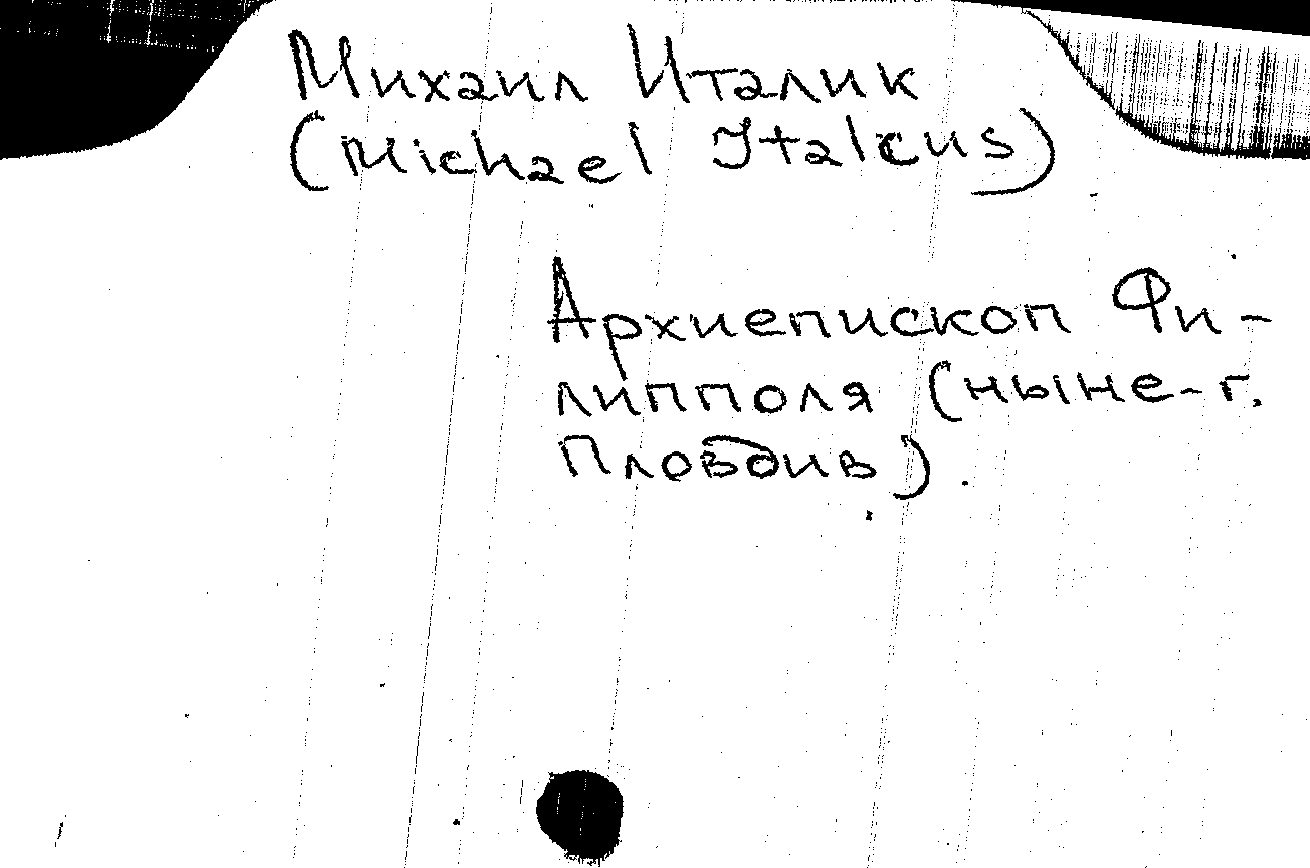 Михаил Италик
(Michael Italcus)
Архиепископ Фи-
липполя (ныне-г.
Пловдив).